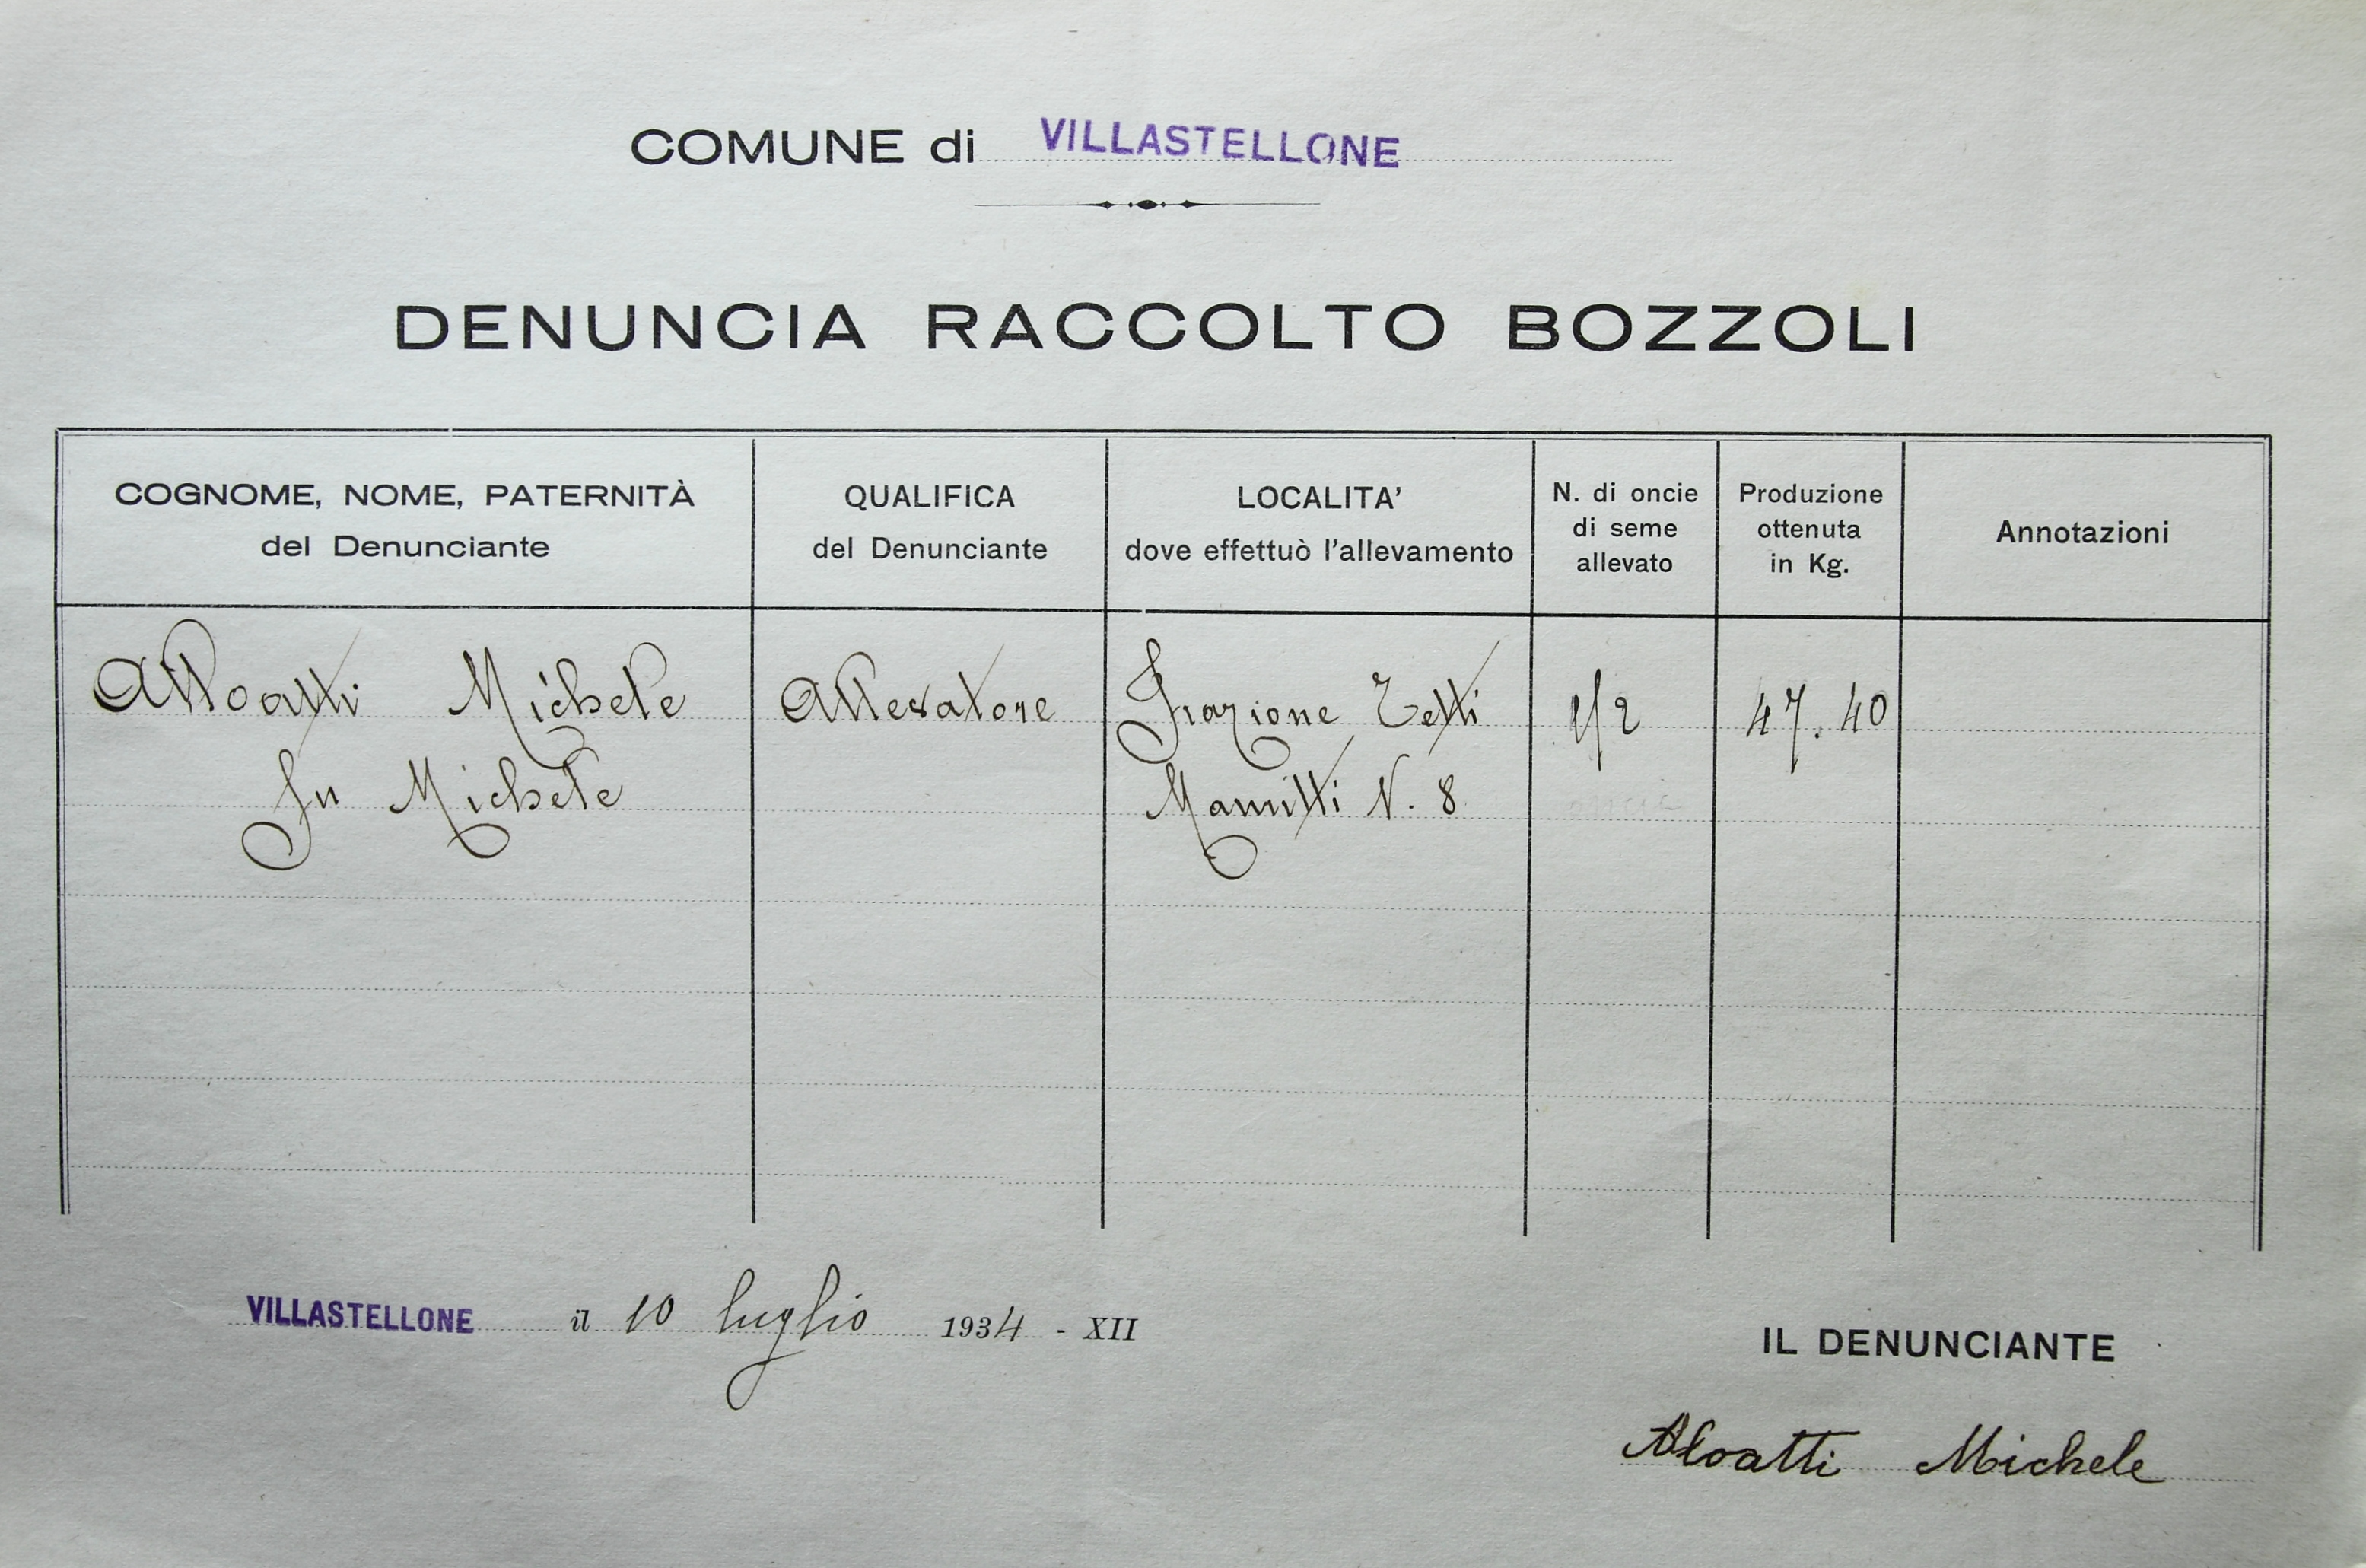 COMUNE di VILLASTELLONE
DENUNCIA RACCOLTO BOZZOLI
COGNOME, NOME, PATERNITÀ
del Denunciante
QUALIFICA
del Denunciante
LOCALITA'
dove effettuò l'allevamento
N. di oncie
di seme
allevato
Produzione
ottenuta
in Kg.
Annotazioni
Alloatti Michele
fu Michele
Allevatore
Frazione Tetti
Mauritti N. 8
1/2
47.40
VILLASTELLONE il 10 luglio 1934 - XII
IL DENUNCIANTE
Aloatti Michele